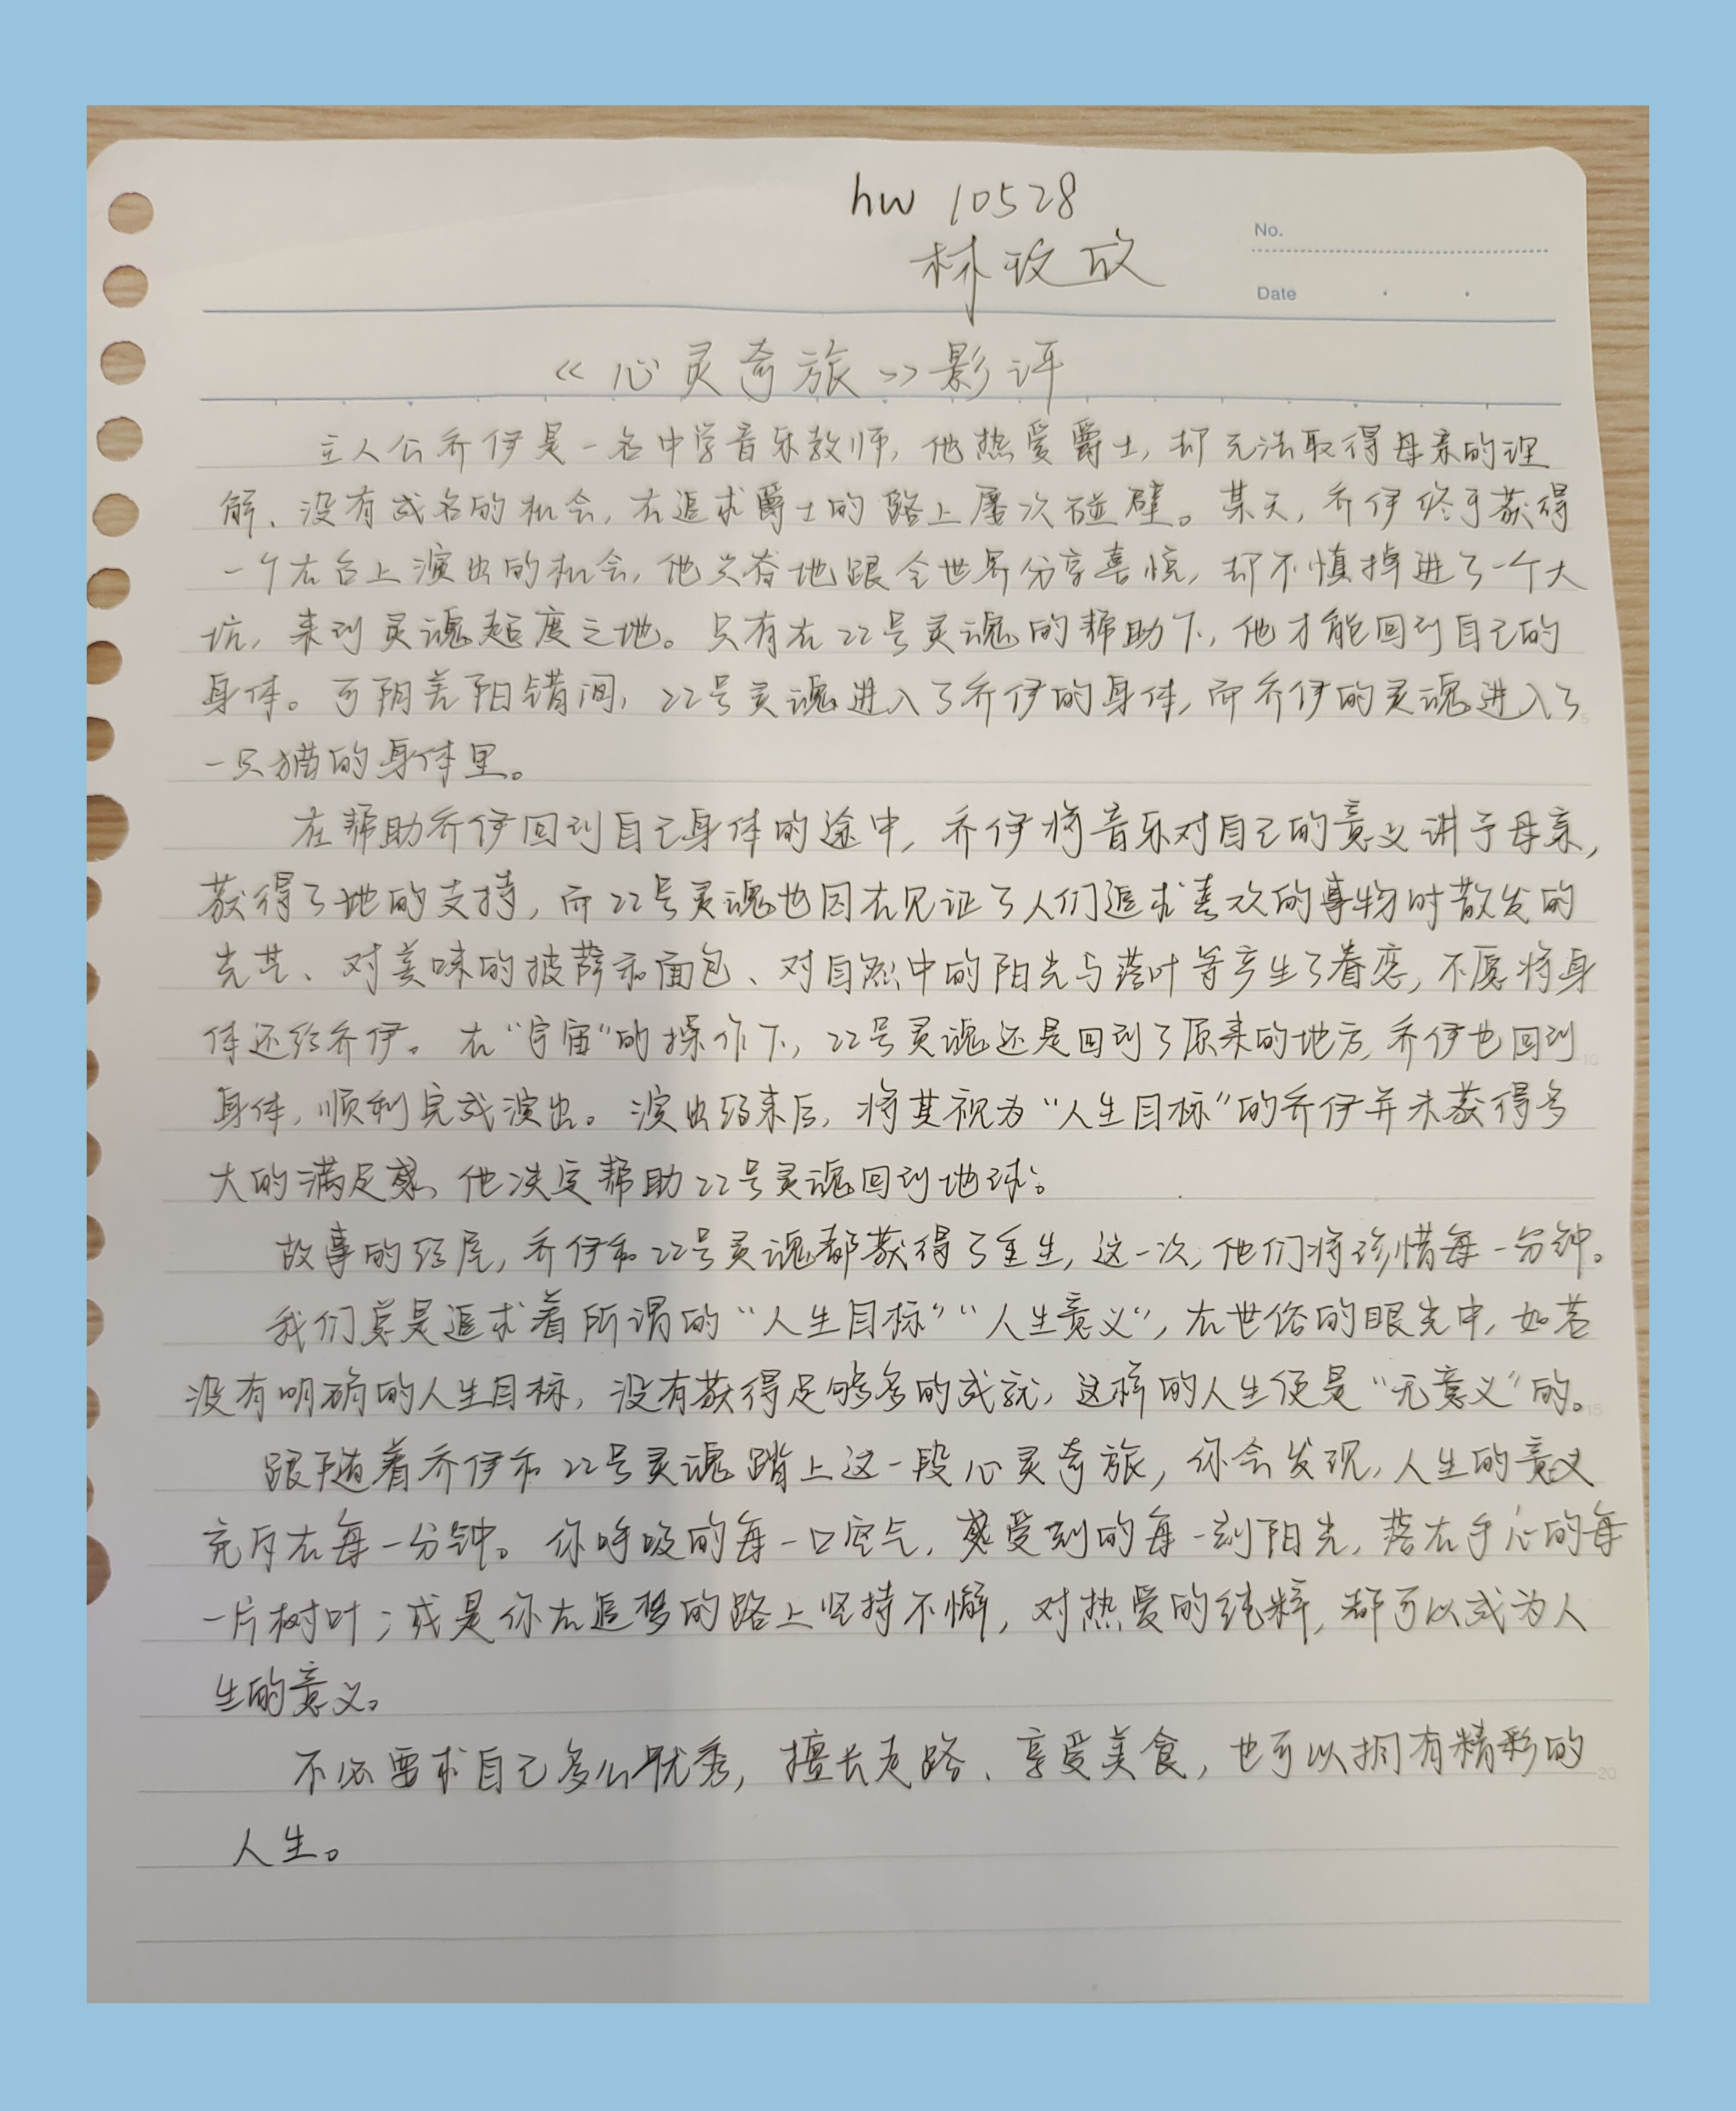 hw 10528
林玫欣
No.
Date
《心灵奇旅》影评
主人公乔伊是一名中学音乐教师，他热爱爵士，却无法取得母亲的理
解、没有成名的机会，在追求爵士的路上屡次碰壁。某天，乔伊终于获得
一个在台上演出的机会，他兴奋地跟全世界分享喜悦，却不慎掉进了一个大
坑，来到灵魂超度之地。只有在22号灵魂的帮助下，他才能回到自己的
身体。可阴差阳错间，22号灵魂进入了乔伊的身体，而乔伊的灵魂进入了
一只猫的身体里。
在帮助乔伊回到自己身体的途中，乔伊将音乐对自己的意义讲于母亲，
获得了她的支持，而22号灵魂也因在见证了人们追求喜欢的事物时散发的
光芒、对美味的披萨和面包、对自然中的阳光与落叶等产生了眷恋，不愿将身
体还给乔伊。在“宇宙”的操作下，22号灵魂还是回到了原来的地方，乔伊也回到
身体，顺利完成演出。演出结束后，将其视为“人生目标”的乔伊并未获得多
大的满足感，他决定帮助22号灵魂回到地球。
故事的结尾，乔伊和22号灵魂都获得了重生，这一次，他们将珍惜每一分钟。
我们总是追求着所谓的“人生目标”“人生意义”，在世俗的眼光中，如若
没有明确的人生目标，没有获得足够多的成就，这样的人生便是“无意义”的。
跟随着乔伊和22号灵魂踏上这一段心灵奇旅，你会发现，人生的意义
充斥在每一分钟。你呼吸的每一口空气，感受到的每一刻阳光，落在手心的每
一片树叶；或是你在追梦的路上坚持不懈，对热爱的纯粹，都可以成为人
生的意义。
不必要求自己多么优秀，擅长走路、享受美食，也可以拥有精彩的
人生。